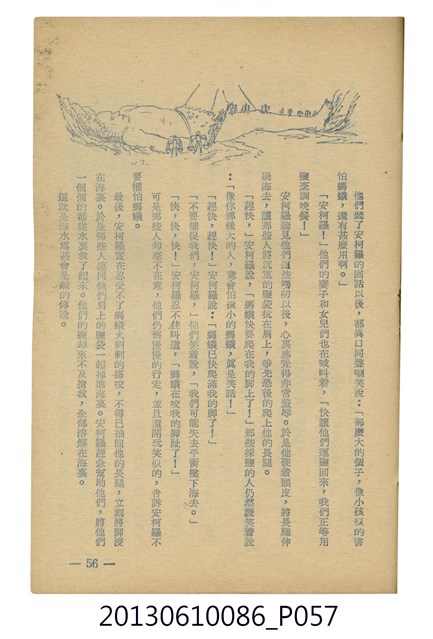 他們聽了安柯羅的回話以後，都異口同聲嘲笑說：「那麼大的個子，像小孩似的害
怕螞蟻，還有甚麼用啊。」
「安柯羅！」他們的妻子和女兒們也在喊叫着，「快讓他們運鹽回來，我們正等用
鹽來調晚餐！」
安柯羅聽見他們這些嘲叨以後，心裏感覺得非常羞辱。於是他硬着頭皮，將長腿伸
過海去，讓那些人將沉重的鹽袋抗在肩上，爭先恐後的爬上他的長腿。
「趕快，」安柯羅說，「螞蟻快要爬在我的脚上了！」那些採鹽的人仍然譏笑着說
：「像你那樣大的人，竟會怕微小的螞蟻，眞是笑話！」
「趕快，趕快！」安柯羅說：「螞蟻已快爬滿我的脚了！」
「不要催促我們，安柯羅，」他們笑着說，「我們可能失去平衡墮下海去。」
「快，快，快！」安柯羅忍不住叫道，「螞蟻在咬我的脚趾了！」
可是那些人却毫不在意，他們仍舊慢慢的行走，並且還開玩笑似的，告訴安柯羅不
要懼怕螞蟻。
最後，安柯羅實在忍受不了螞蟻火刺刺的痛咬，不得已抽回他的長腿，立刻將脚浸
在海裏。於是那些人連同他們肩上的鹽袋一起掉進海裏。安柯羅趕急幫助他們，將他們
一個個的都從水裏救了起來。他們的鹽却來不及搶救，全部溶解在海裏。
這就是海水爲甚會是鹹的傳說。
— 56 —
20130610086_P057